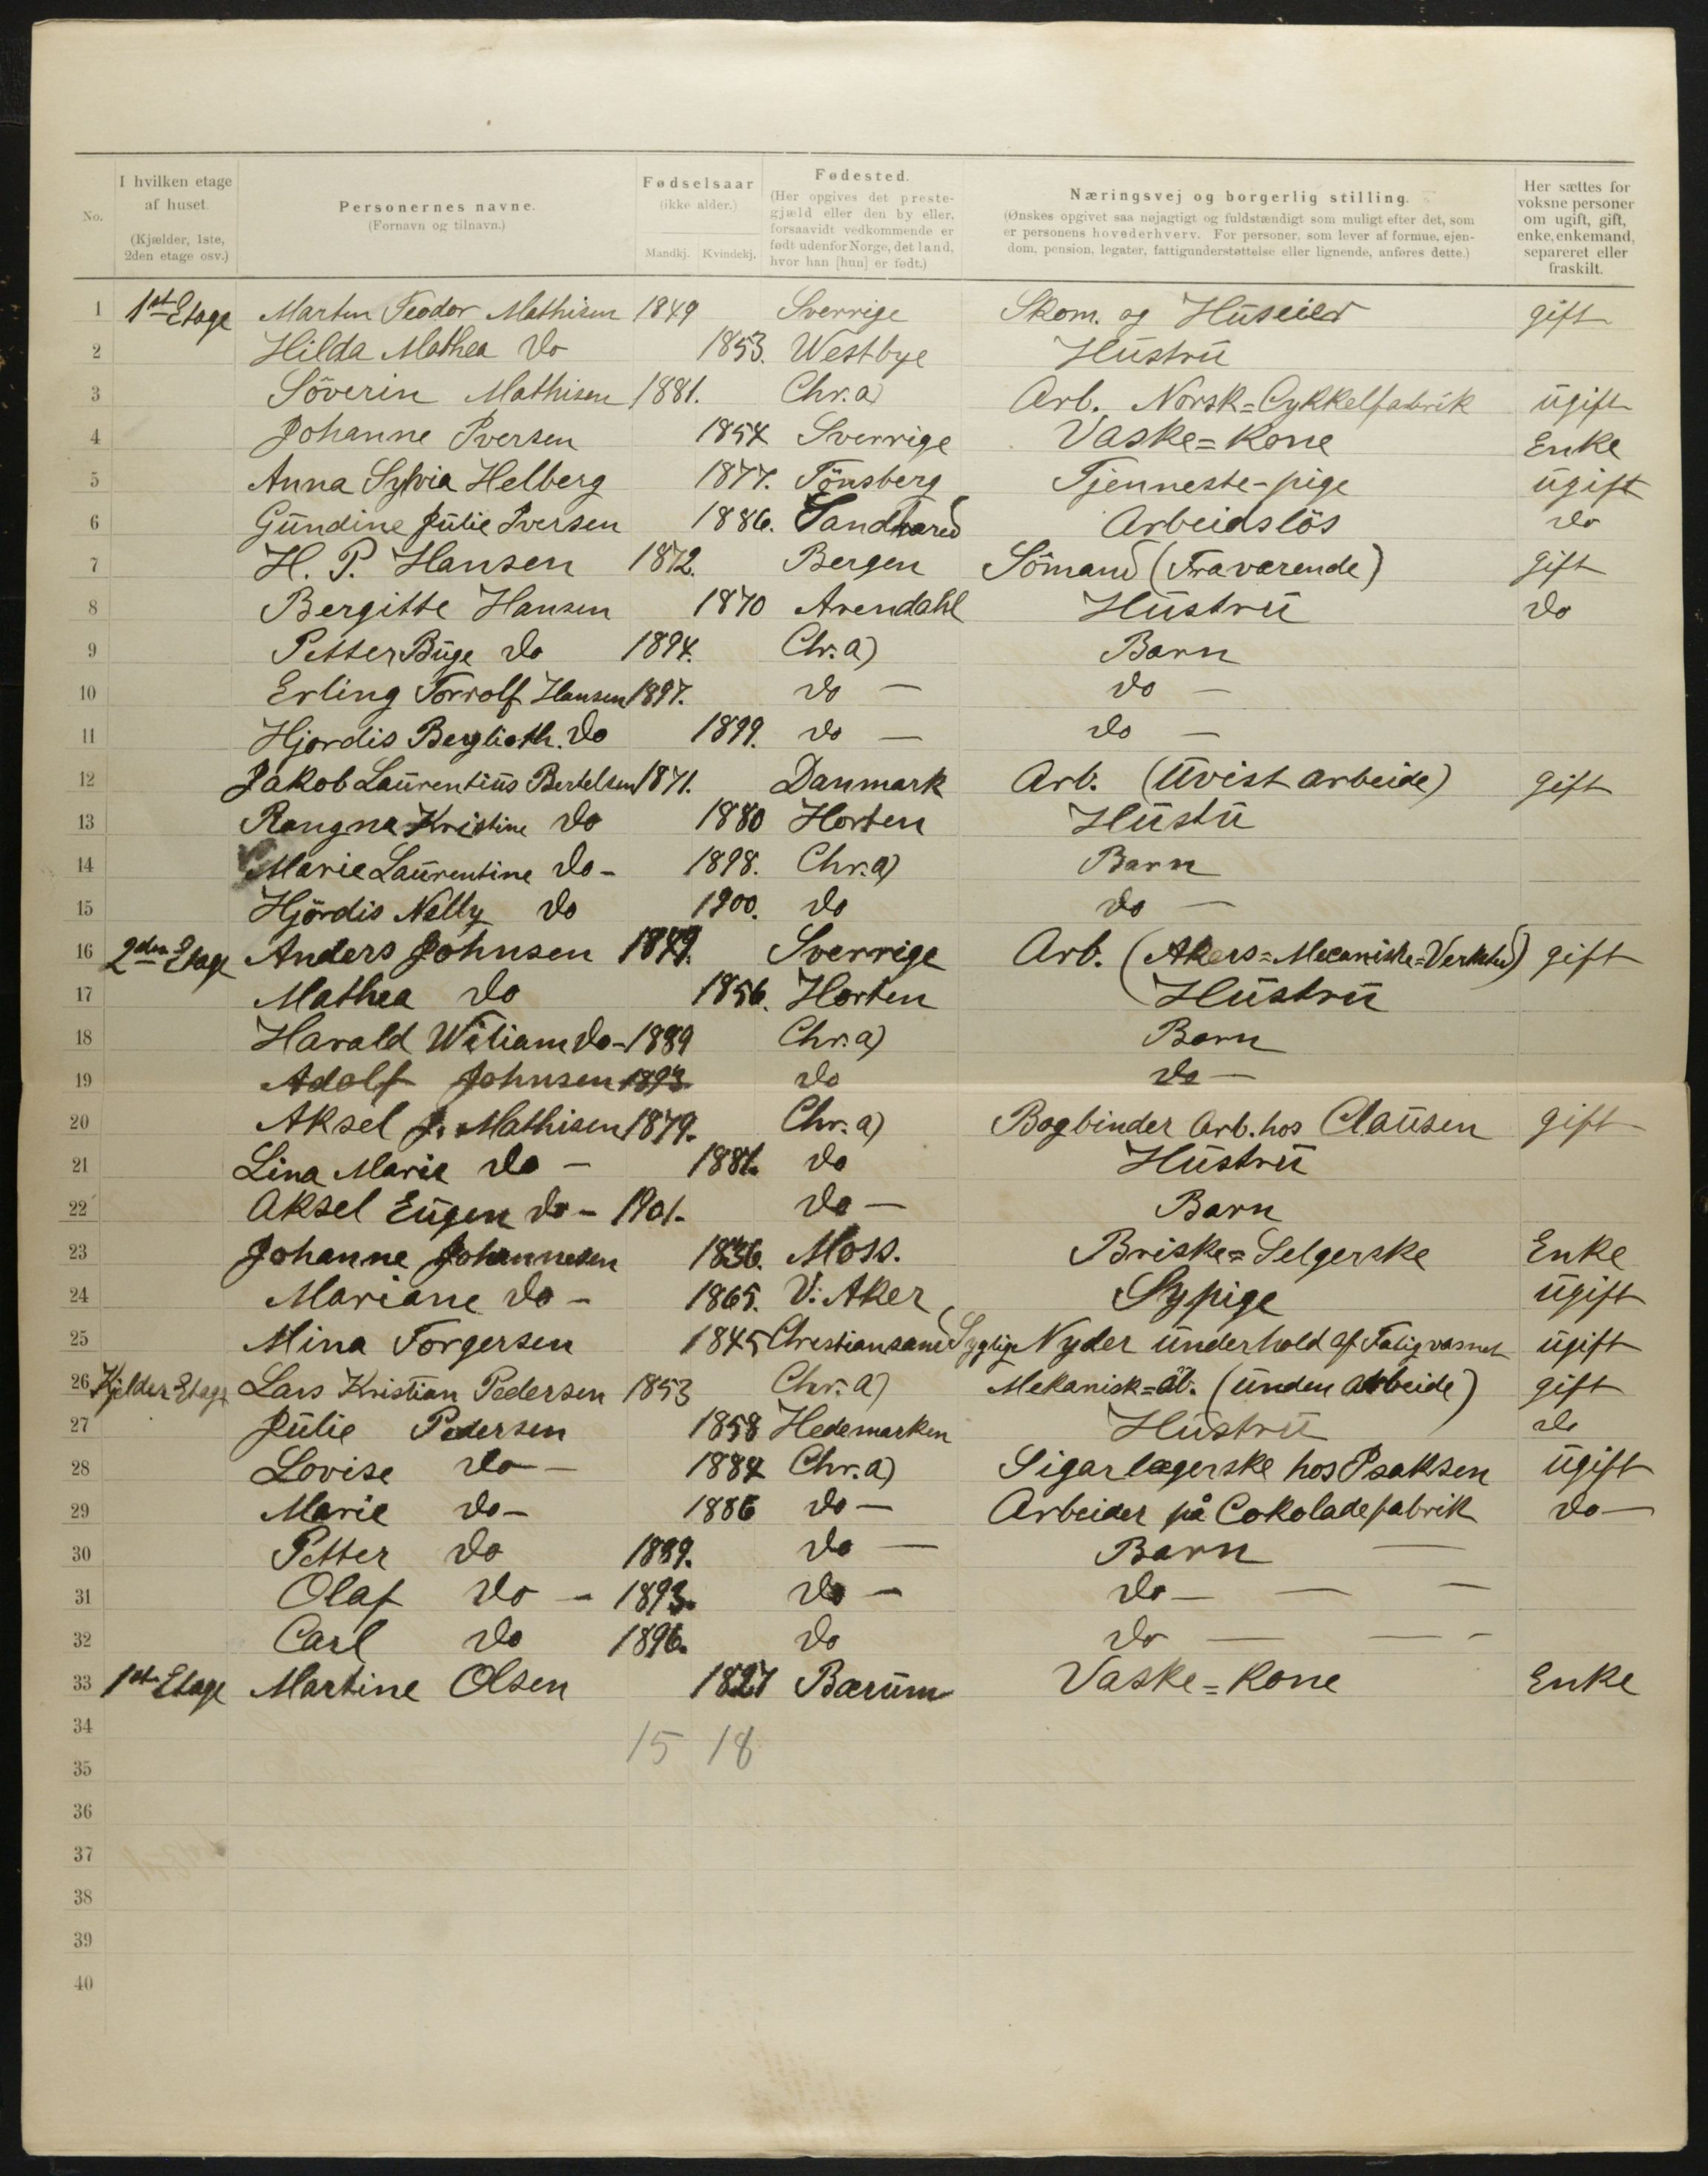 No.
I hvilken etage af huset. (Kjælder, 1ste, 2den etage osv.)
Personernes navne. (Fornavn og tilnavn.)
Fødselsaar (ikke alder.) Mandkj. Kvindekj.
Fødested. (Her opgives det prestegjæld eller den by eller, forsaavidt vedkommende er født udenfor Norge, det land, hvor han [hun] er født.)
Næringsvej og borgerlig stilling. (Ønskes opgivet saa nøjagtigt og fuldstændigt som muligt efter det, som er personens hovederhverv. For personer, som lever af formue, ejendom, pension, legater, fattigunderstøttelse eller lignende, anføres dette.)
Her sættes for voksne personer om ugift, gift, enke, enkemand, separeret eller fraskilt.
1 1st Etage Martin Teodor Mathisen 1849 Sverrige Skom. og Huseier gift
2 Hilda Mathea Do 1853. Westbye Hustru
3 Söverin Mathisen 1881. Chr.a) Arb. Norsk=Cykkelfabrik ugift
4 Johanne Iversen 1854 Sverrige Vaske=Kone Enke
5 Anna Sylvia Helberg 1877. Tönsberg Tjenneste-pige ugift
6 Gundine Julie Iversen 1886. Arbeidslös do
7 H. P. Hansen 1872. Bergen Sömand (Fraværende) gift
8 Bergitte Hansen 1870 Arendahl Hustru do
9 Petter Buge do 1894. Chr.a) Barn
10 Erling Torrolf Hansen 1897. do — do —
11 Hjordis Berglioth. do 1899. do — do —
12 Jakob Laurentius Bertelsen 1871. Danmark Arb. (Uvist arbeide) gift
13 Rangna Kristine do 1880 Horten Hustu
14 Marie Laurentine do - 1898. Chr.a) Barn
15 Hjördis Nelly do 1900. do do —
16 2den Etage Anders Johnsen 1849. Sverrige Arb. (Akers=Mecaniske=Verksted) gift
17 Mathea do 1856. Horten Hustru
18 Harald Wiliam do - 1889 Chr.a) Barn
19 Adolf Johnsen 1893. do do —
20 Aksel J. Mathisen 1879. Chr.a) Bogbinder Arb. hos Clausen gift
21 Lina Marie do — 1881. do Hustru
22 Aksel Eugen do - 1901. do — Barn
23 Johanne Johannesen 1836. Moss. Briske=Selgerske Enke
24 Mariane do - 1865. V. Aker Sypige ugift
25 Mina Torgersen 1845 Christiansand Syglig Nyder underhold af ugift
26 Kjelder Etage Lars Kristian Pedersen 1853 Chr.a) Mekanisk=ab. (unden arbeide) gift
27 Julie Pedersen 1858 Hedemarken Hustru do
28 Lovise do — 1884 Chr.a) Sigarlægerske hos Isaksen ugift
29 Marie do - 1886 do — Arbeider på Cokoladefabrik do —
30 Petter do 1889. do — Barn —
31 Olaf do - 1893. do — do — — —
32 Carl do 1896. do do — — -
33 1st Etage Martine Olsen 1827 Bærum Vaske=Kone Enke
34
15 18
35
36
37
38
39
40